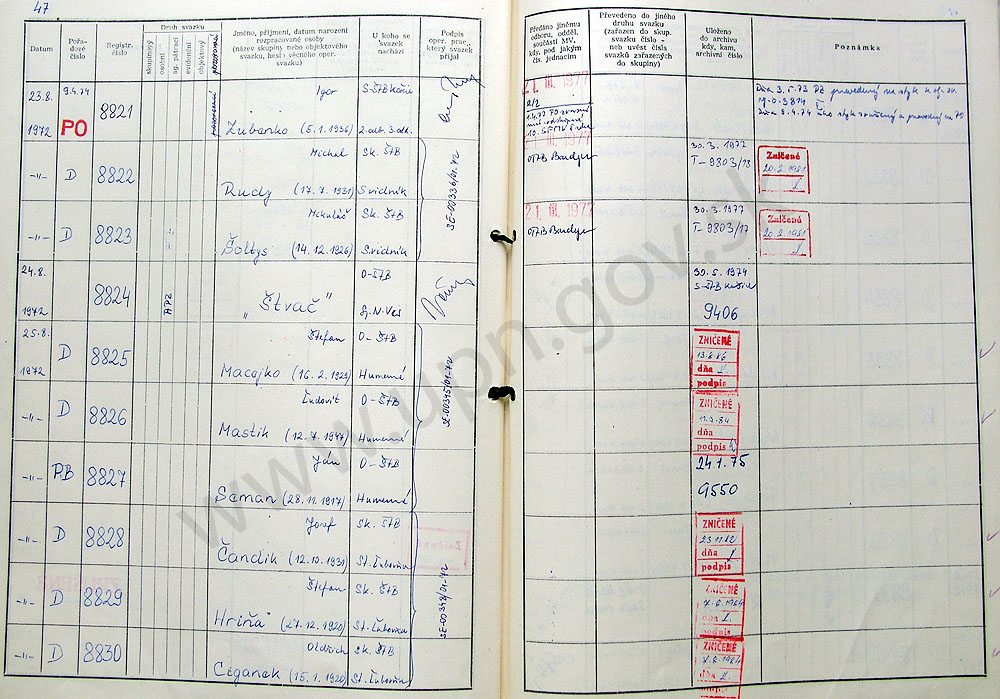 47
Datum
Pořa-
dové
číslo
Registr.
číslo
Druh svazku
skupinový
osobní
ag. pátrací
evidenční
objektový
Jméno, příjmení, datum narození
rozpracované osoby
(název skupiny nebo objektového
svazku, heslo věcného oper.
svazku)
U koho se
svazek
nachází
Podpis
oper. prac.,
který svazek
přijal
Předáno jinému
odboru, odděl.
součásti MV,
kdy, pod jakým
čís. jednacím
Převedeno do jiného
druhu svazku
(zařazen do skup.
svazku číslo -
neb uvést čísla
svazků zařazených
do skupiny)
Uloženo
do archivu
kdy, kam,
archivní číslo
Poznámka
23.8.
1972
9.4.74
PO
8821
Igor
Zubanko (5.1.1936)
S-ŠTB Košice
2.odb. 3.odd.
21. III. 1977
-"- D 8822
Michal
Rudy (17.7.1931)
Sk. ŠTB
Svidník
SE-00336/01-72
21. III. 1977
30.3.1977
T-9803/18
Zničené
20.2.1981
-"- D 8823
Mikuláš
Šoltys (14.12.1926)
Sk. ŠTB
Svidník
21. III. 1977
30.3.1977
T-9803/17
Zničené
20.2.1981
24.8.
1972
8824
„Štvač"
O-ŠTB
Sp.N.Ves
30.5.1974
S-ŠTB Košice
9406
25.8.
1972
D 8825
Štefan
Macajko (16.2.1929)
O-ŠTB
Humenné
SE-00345/01-72
ZNIČENÉ
13.6.86
dňa
podpis
-"- D 8826
Ľudovít
Mastik (12.7.1947)
O-ŠTB
Humenné
ZNIČENÉ
dňa
podpis
-"- RB 8827
Ján
Seman (28.11.1917)
O-ŠTB
Humenné
24.1.75
9550
-"- D 8828
Jozef
Čandik (12.10.1931)
Sk. ŠTB
St. Ľubovňa
SE-00348/01-72
ZNIČENÉ
23.11.82
dňa
podpis
-"- D 8829
Štefan
Hriňa (27.12.1920)
Sk. ŠTB
St. Ľubovňa
ZNIČENÉ
dňa
podpis
-"- D 8830
Oldrich
Ciganek (15.1.1920)
Sk. ŠTB
St. Ľubovňa
ZNIČENÉ
dňa
www.upn.gov.s